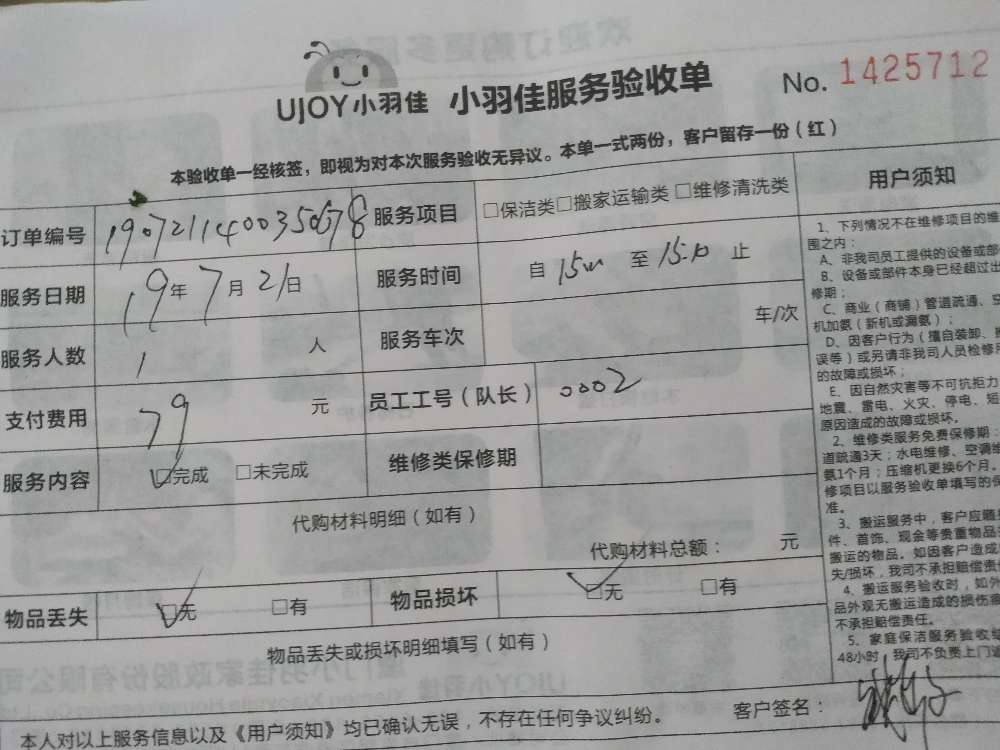 UJOY小羽佳 小羽佳服务验收单 No. 1425712
本验收单一经核签，即视为对本次服务验收无异议。本单一式两份，客户留存一份（红）
订单编号 服务项目 □保洁类□搬家运输类 □维修清洗类
服务日期 19年 7月 21日 服务时间 自 至 15:10 止
服务人数 1 人 服务车次 车/次
支付费用 79 元 员工工号（队长） 0002
服务内容 □完成 □未完成 维修类保修期
代购材料明细（如有）
代购材料总额： 元
物品丢失 □无 □有 物品损坏 □无 □有
物品丢失或损坏明细填写（如有）
本人对以上服务信息以及《用户须知》均已确认无误，不存在任何争议纠纷。 客户签名：
用户须知
1、下列情况不在维修项目的维
围之内：
A、非我司员工提供的设备或部
B、设备或部件本身已经超过出
修期；
C、商业（商铺）管道疏通、空
机加氨（新机或漏氨）；
D、因客户行为（擅自装卸、
误等）或另请非我司人员检修
的故障或损坏；
E、因自然灾害等不可抗拒力
地震、雷电、火灾、停电、短
原因造成的故障或损坏。
2、维修类服务免费保修期：
道疏通3天；水电维修、空调
氨1个月；压缩机更换6个月。
修项目以服务验收单填写的保
准。
3、搬运服务中，客户应随
件、首饰、现金等贵重物品
搬运的物品。如因客户造成
失/损坏，我司不承担赔偿责
4、搬运服务验收时，如外
品外观无搬运造成的损伤
不承担赔偿责任。
5、家庭保洁服务验收
48小时，我司不负责上门